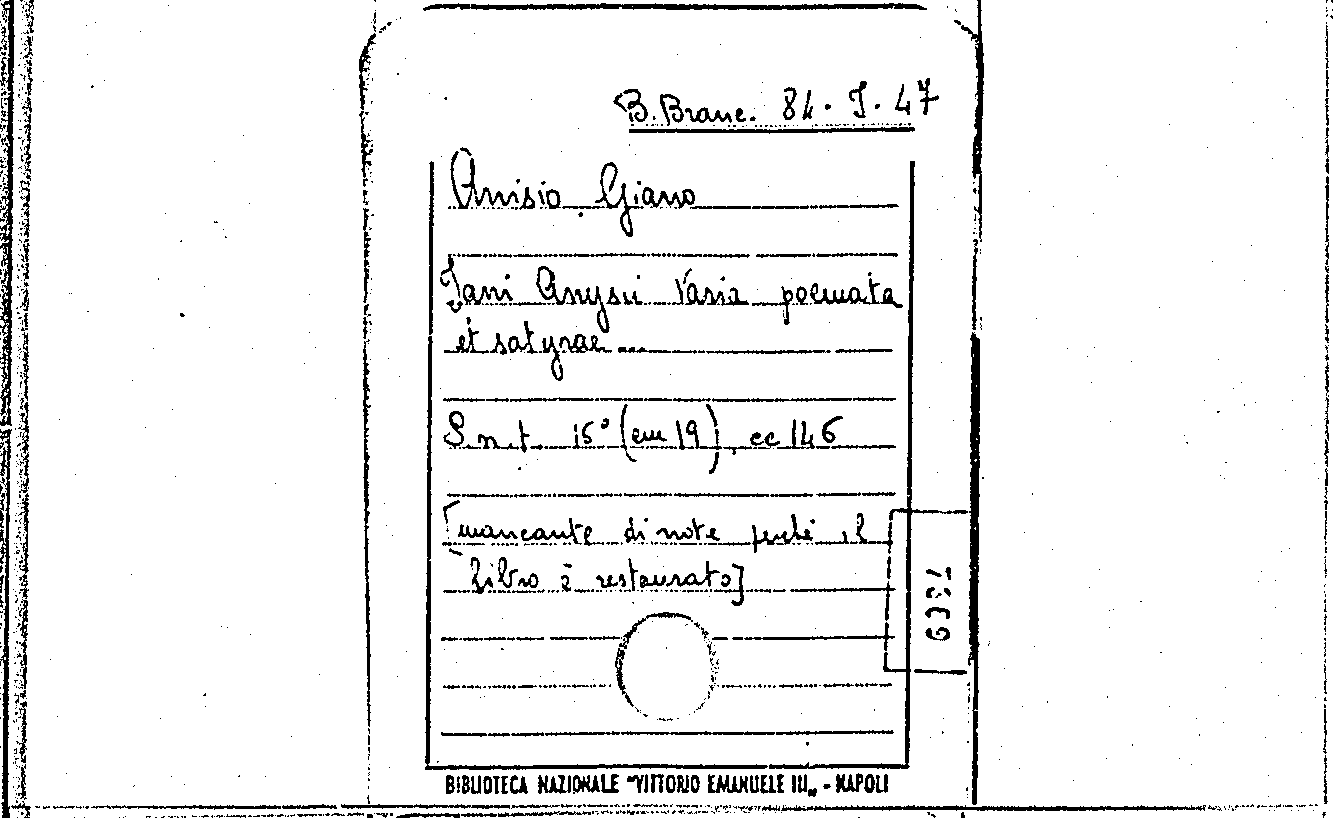 B. Branc. 84. I. 47
Anisio Giano
Jani Anysii Varia poemata
et satyrae ...
S. n. t. 15° (cm 19), cc 146
[mancante di note perché il
libro è restaurato]
7339
BIBLIOTECA NAZIONALE "VITTORIO EMANUELE III„ - NAPOLI